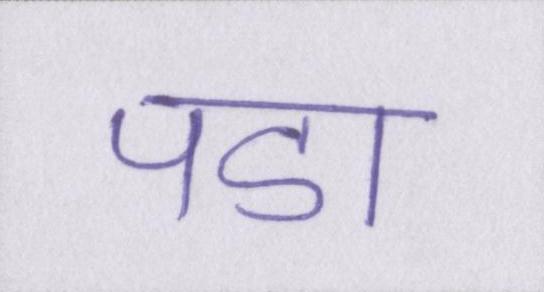 पडा